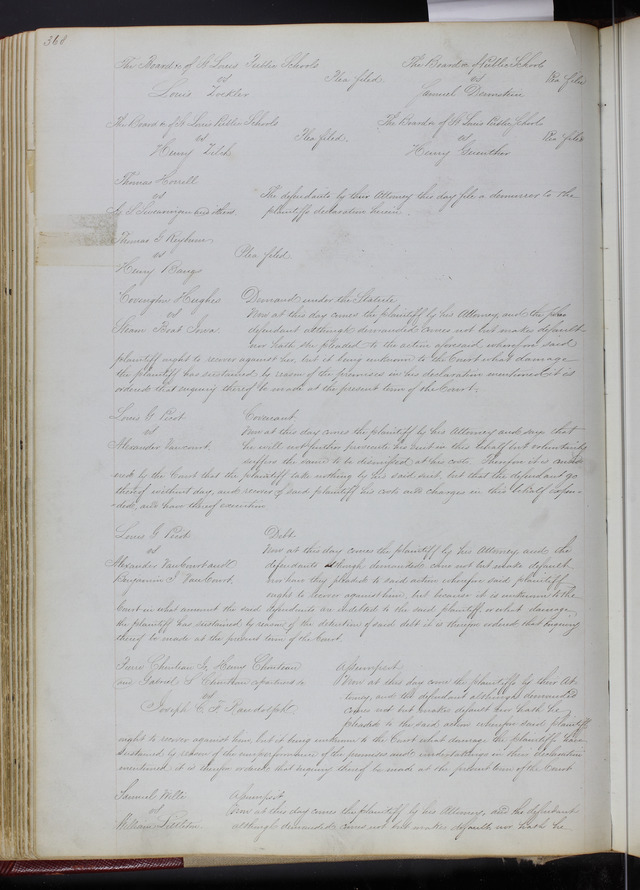 368
The Board &c of St Louis Public Schools
vs Plea filed
Louis
The Board &c of Public Schools
vs Plea filed
Samuel
The Board &c of St Louis Public Schools
vs Plea filed
Henry
The Board &c of St Louis Public Schools
vs Plea filed
Henry Guenther
Thomas Horrell
vs The defendants by their Attorney this day file a demurrer to the
and others plaintiffs declaration herein.
Thomas G
vs Plea filed
Henry Bangs
Covington Hughes Demand under the Statute
vs Now at this day comes the plaintiff by his Attorney and the
Steam Boat Iowa defendant although demanded comes not but makes default
nor hath she pleaded to the action aforesaid, wherefore said
plaintiff ought to recover against her, but it being unknown to the Court what damage
the plaintiff has sustained by reason of the premises in his declaration mentioned, it is
ordered that enquiry thereof be made at the present term of the Court.
Louis G Picot Covenant
vs Now at this day comes the plaintiff by his Attorney and says that
Alexander Vancourt he will not further prosecute his suit in this behalf but voluntarily
suffers the same to be dismissed at his costs. Therefore it is consid
ered by the Court that the plaintiff take nothing by his said suit, but that the defendant go
thereof without day, and recover of said plaintiff his costs and charges in this behalf expen
ded, and have thereof execution.
Louis G Picot Debt
vs Now at this day comes the plaintiff by his Attorney and the
Alexander VanCourt and defendants although demanded come not but make default
Benjamin I VanCourt nor have they pleaded to said action wherefore said plaintiff
ought to recover against them, but because it is unknown to the
Court in what amount the said defendants are indebted to the said plaintiff, or what damage
the plaintiff has sustained by reason of the detention of said debt it is therefore ordered that enquiry
thereof be made at the present term of the Court.
Chouteau Jr, Chouteau Assumpsit
and Gabriel S Chouteau Now at this day come the plaintiffs by their At
vs torney, and the defendant although demanded
Joseph C F Randolph comes not but makes default nor hath he
pleaded to the said action wherefore said plaintiffs
ought to recover against him, but it being unknown to the Court what damage the plaintiffs have
sustained by reason of the nonperformance of the promises and undertakings in their declaration
mentioned, it is therefore ordered that enquiry thereof be made at the present term of the Court
Samuel Assumpsit
vs Now at this day comes the plaintiff by his Attorney, and the defendant
William although demanded comes not but makes default nor hath he